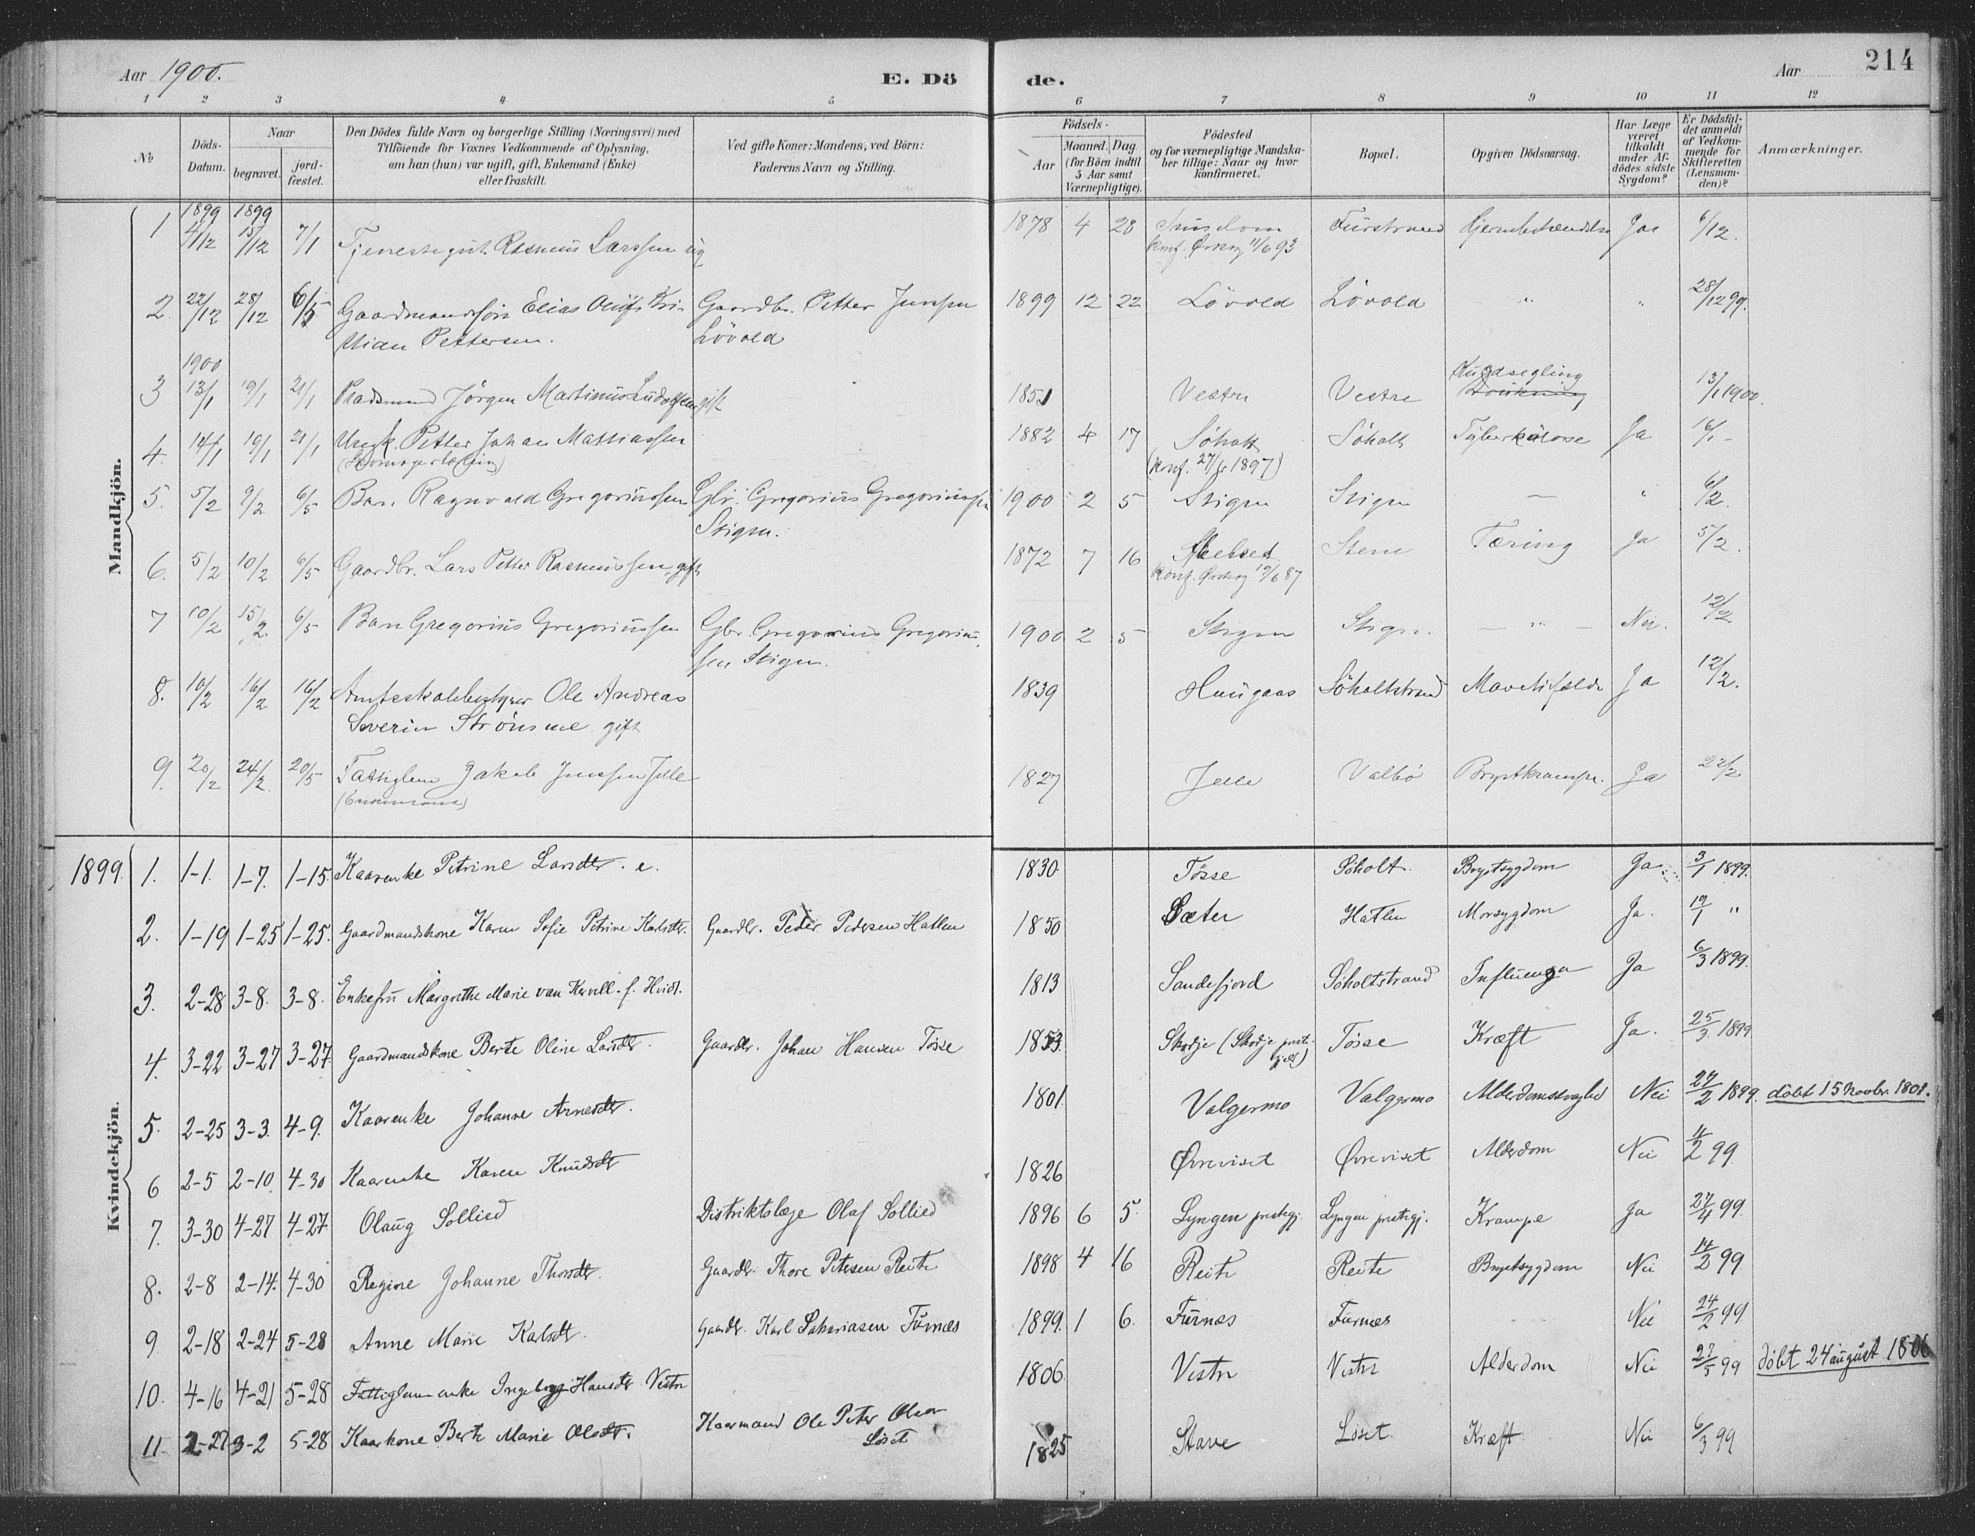 Aar 1900. E. Dö de. Aar 214
1 2 3 4 5 6 7 8 9 10 11 12
No Döds-Datum. Naar begravet. jordfæstet. Den Dödes fulde Navn og borgerlige Stilling (Næringsvei) med Tilföiende for Voxnes Vedkommende af Oplysning, om han (hun) var ugift, gift, Enkemand (Enke) eller fraskilt. Ved gifte Koner: Mandens, ved Börn: Faderens Navn og Stilling. Födsels- Aar Maaned. Dag (for Börn indtil 5 Aar samt Værnepligtige). Födested og for værnepligtige Mandskaber tillige: Naar og hvor konfirmeret. Bopæl. Opgiven Dödsaarsag. Har Læge været tilkaldt under Afdödes sidste Sygdom? Er Dödsfaldet anmeldt af Vedkommende for Skifteretten (Lensmanden)? Anmærkninger.
Mandkjön.
1 1899 4/12 1899 15/12 7/1 Tjenestegut Rasmus Larssen ug 1878 4 28 Furstrand Hjernebetændelse Ja 6/12.
konf. Ørskog 11/6 93
2 22/12 28/12 6/5 Gaardmandssön Elias Oluf Kri- Gaardbr. Petter Jenssen 1899 12 22 Lövold Lövold " " 28/12 99.
stian Pettersen. Lövold
3 1900 13/1 19/1 21/1 Pladsmand Jørgen Martinus Ludolfsen gift 1851 Vestre Vestre Kuldsegling 13/1 1900.
4. 14/1 19/1 21/1 Ungk. Petter Johan Mathiassen 1882 4 17 Søholt Søholt Tuberkulose Ja 16/1 -
(Skomagerlærling) (konf. 27/6 1897)
5. 5/2 9/2 6/5 Barn Ragnvald Gregoriussen Gbr. Gregorius Gregoriussen 1900 2 5 Stigen Stigen — " 6/2.
Stigen.
6. 5/2 10/2 6/5 Gaardbr. Lars Petter Rasmussen, gift 1872 7 16 Stene Tæring Ja 5/2.
konf. Ørskog 19/6 87
7 10/2 15/2. 6/5 Barn Gregorius Gregoriussen Gbr. Gregorius Gregorius- 1900 2 5 Stigen Stigen — " — Nei. 12/2
sen Stigen.
8. 10/2 16/2 16/2 Amtsskolebestyrer Ole Andreas 1839 Haugaas Söholtstrand Mavetilfælde Ja 12/2.
Severin Strömme gift
9. 20/2 24/2 20/5 Fattiglem Jakob Jenssen Jelle 1827 Jelle Valbö Brystkrampe. Ja 22/2
(Enkemand)
Kvindekjön.
1899. 1. 1-1. 1-7. 1-15. Kaarenke Petrine Larsdtr. e. 1830. Tösse Söholt. Brystsygdom Ja. 3/1 1899.
2. 1-19 1-25 1-25. Gaardmandskone Karen Sofie Petrine Karlsdtr. Gaardbr. Peder Pedersen Hatlen 1850 Sæter Hatlen Morsygdom Ja. 19/1 "
3. 2-28 3-8. 3-8. Enkefru Margrethe Marie van Kervell. f. Hvidt. 1813 Sandefjord Söholtstrand Influenza Ja 6/3 1899.
4. 3-22 3-27 3-27. Gaardmandskone Berte Oline Larsdtr. Gaardbr. Johan Hansen Tösse 1853. Skodje (Skodje preste- Tösse Kræft Ja. 25/3 1899
gjeld)
5. 2-25 3-3. 4-9. Kaarenke Johanne Arnesdtr. 1801. Valgermo Valgermo Alderdomssvaghed Nei 27/2 1899. döbt 15 Novbr. 1801.
6 2-5 2-10 4-30 Kaarenke Karen Knudsdtr 1826 Övreviset Övreviset Alderdom Nei 11/2 99.
7. 3-30 4-27 4-27 Olaug Sollied Distriktslæge Olaf Sollied 1896 6 5. Lyngen prestegj. Lyngen prestegj. Krampe Ja 27/4 99.
8. 2-8 2-14. 4-30 Regine Johanne Thorsdtr. Gaardbr. Thore Petersen Reite 1898 4 16 Reite Reite Brystsygdom Nei 14/2 99.
9 2-18 2-24 5-28 Anne Marie Karlsdtr. Gaardbr. Karl Sakariasen Furnæs 1899. 1 6. Furnæs Furnæs Nei 24/2 99
10. 4-16 4-21 5-28 Fattiglem enke Ingeborg Hansdtr Vestre 1806. Vestre Vestre Alderdom Nei 27/5 99 döbt 24 august 1806
11. 2-27 3-2 5-28 Kaarkone Berte Marie Olsdtr. Kaarmand Ole Peter Olsen 1825 Stave Löset Kræft Nei 6/3 99
Löset